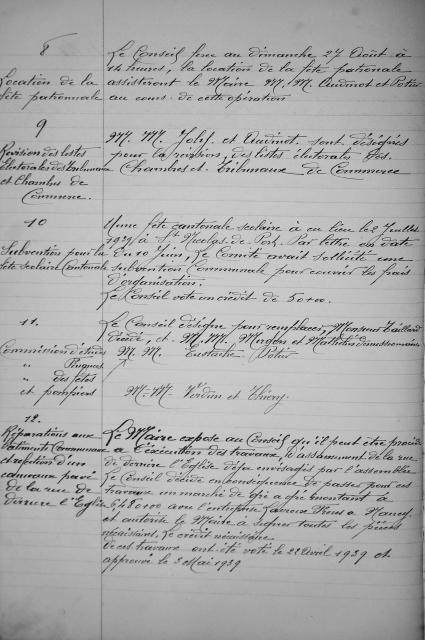 8
Location de la
fête patronnale
Le Conseil fixe au dimanche 27 Août à
14 heures, la location de la fête patronale
assisteront le Maire M.M. Audinot et Potur
au cours de cette opération
9
Revision des listes
Electorales des Tribunaux
et Chambres de
Commerce.
M. M. Jolif et Audinot sont désignés
pour la révision des listes électorales des
Chambres et Tribunaux de Commerce
10
Subvention pour la
fête scolaire Cantonale
Une fête cantonale scolaire a eu lieu le 2 Juillet
1939 à St Nicolas de Port. Par lettre en date
du 10 Juin, le Comité avait sollicité une
subvention communale pour couvrir les frais
d'organisation.
Le Conseil vote un crédit de 50 00.
11.
Commission d'études
" Finances
" des fêtes
et pompiers
Le Conseil désigne pour remplacer, Monsieur
décédé, et M. M. et démissionnaire
M. M. Eustache Potur
M. M. Verdun et Thiery
12.
Réparations aux
bâtiments Communaux
et réfection d'un
caniveau pavé
de la rue de
derrière l'Eglise
Le Maire expose au Conseil qu'il peut être procédé
à l'exécution des travaux, d'assainissement de la rue
de derrière l'Eglise déjà envisagés par l'assemblée
Le Conseil décide en conséquence de passer pour ces
travaux un marché de gré à gré montant à
avec l'entreprise à Nancy.
et autorise le Maire à signer toutes les pièces
nécessaires. Le crédit nécessaire
à ces travaux ont été voté le 22 Avril 1939 et
approuvé le 3 Mai 1939